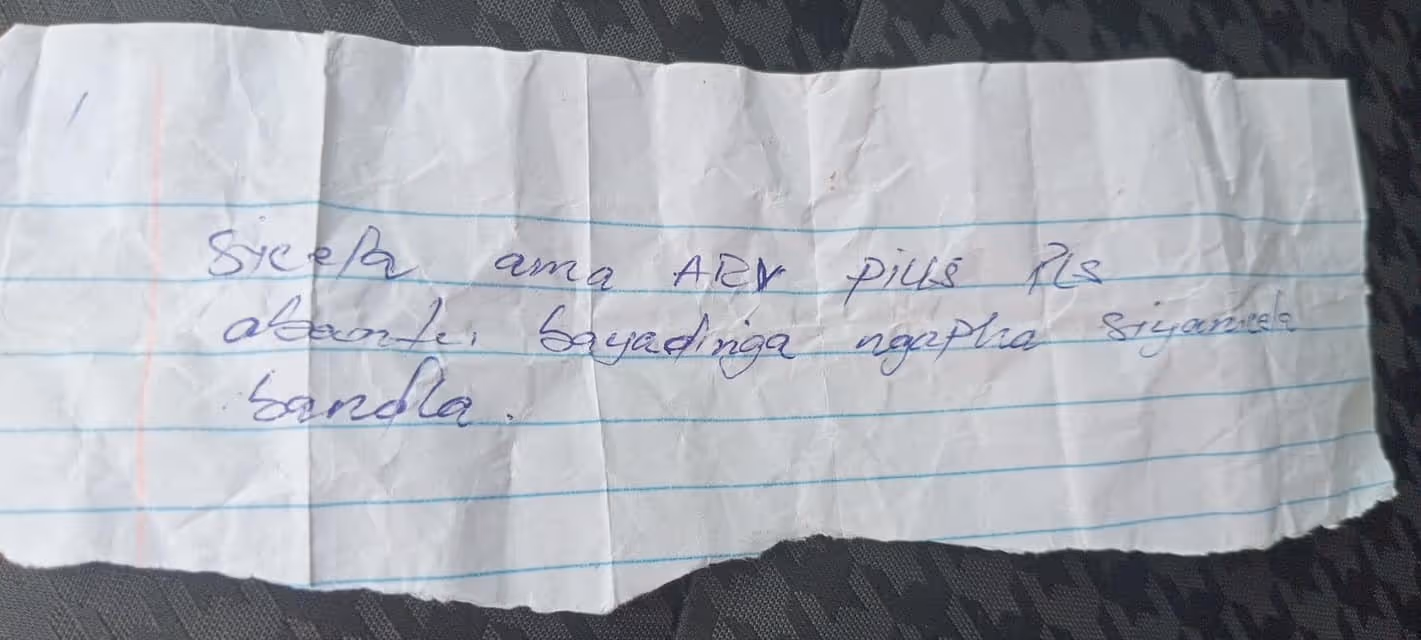 Sicela ama ARV pills Pls
abantu bayadinga ngapha siyancela
bandla.